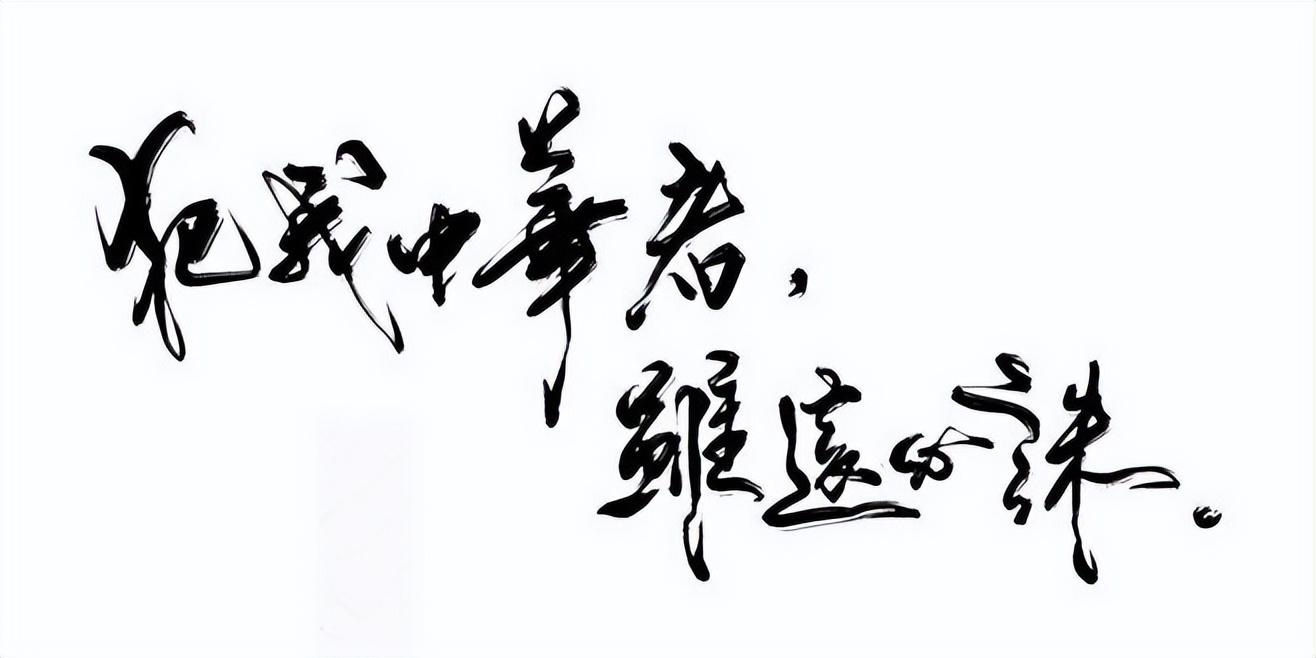 犯我中華者,
雖遠必誅。